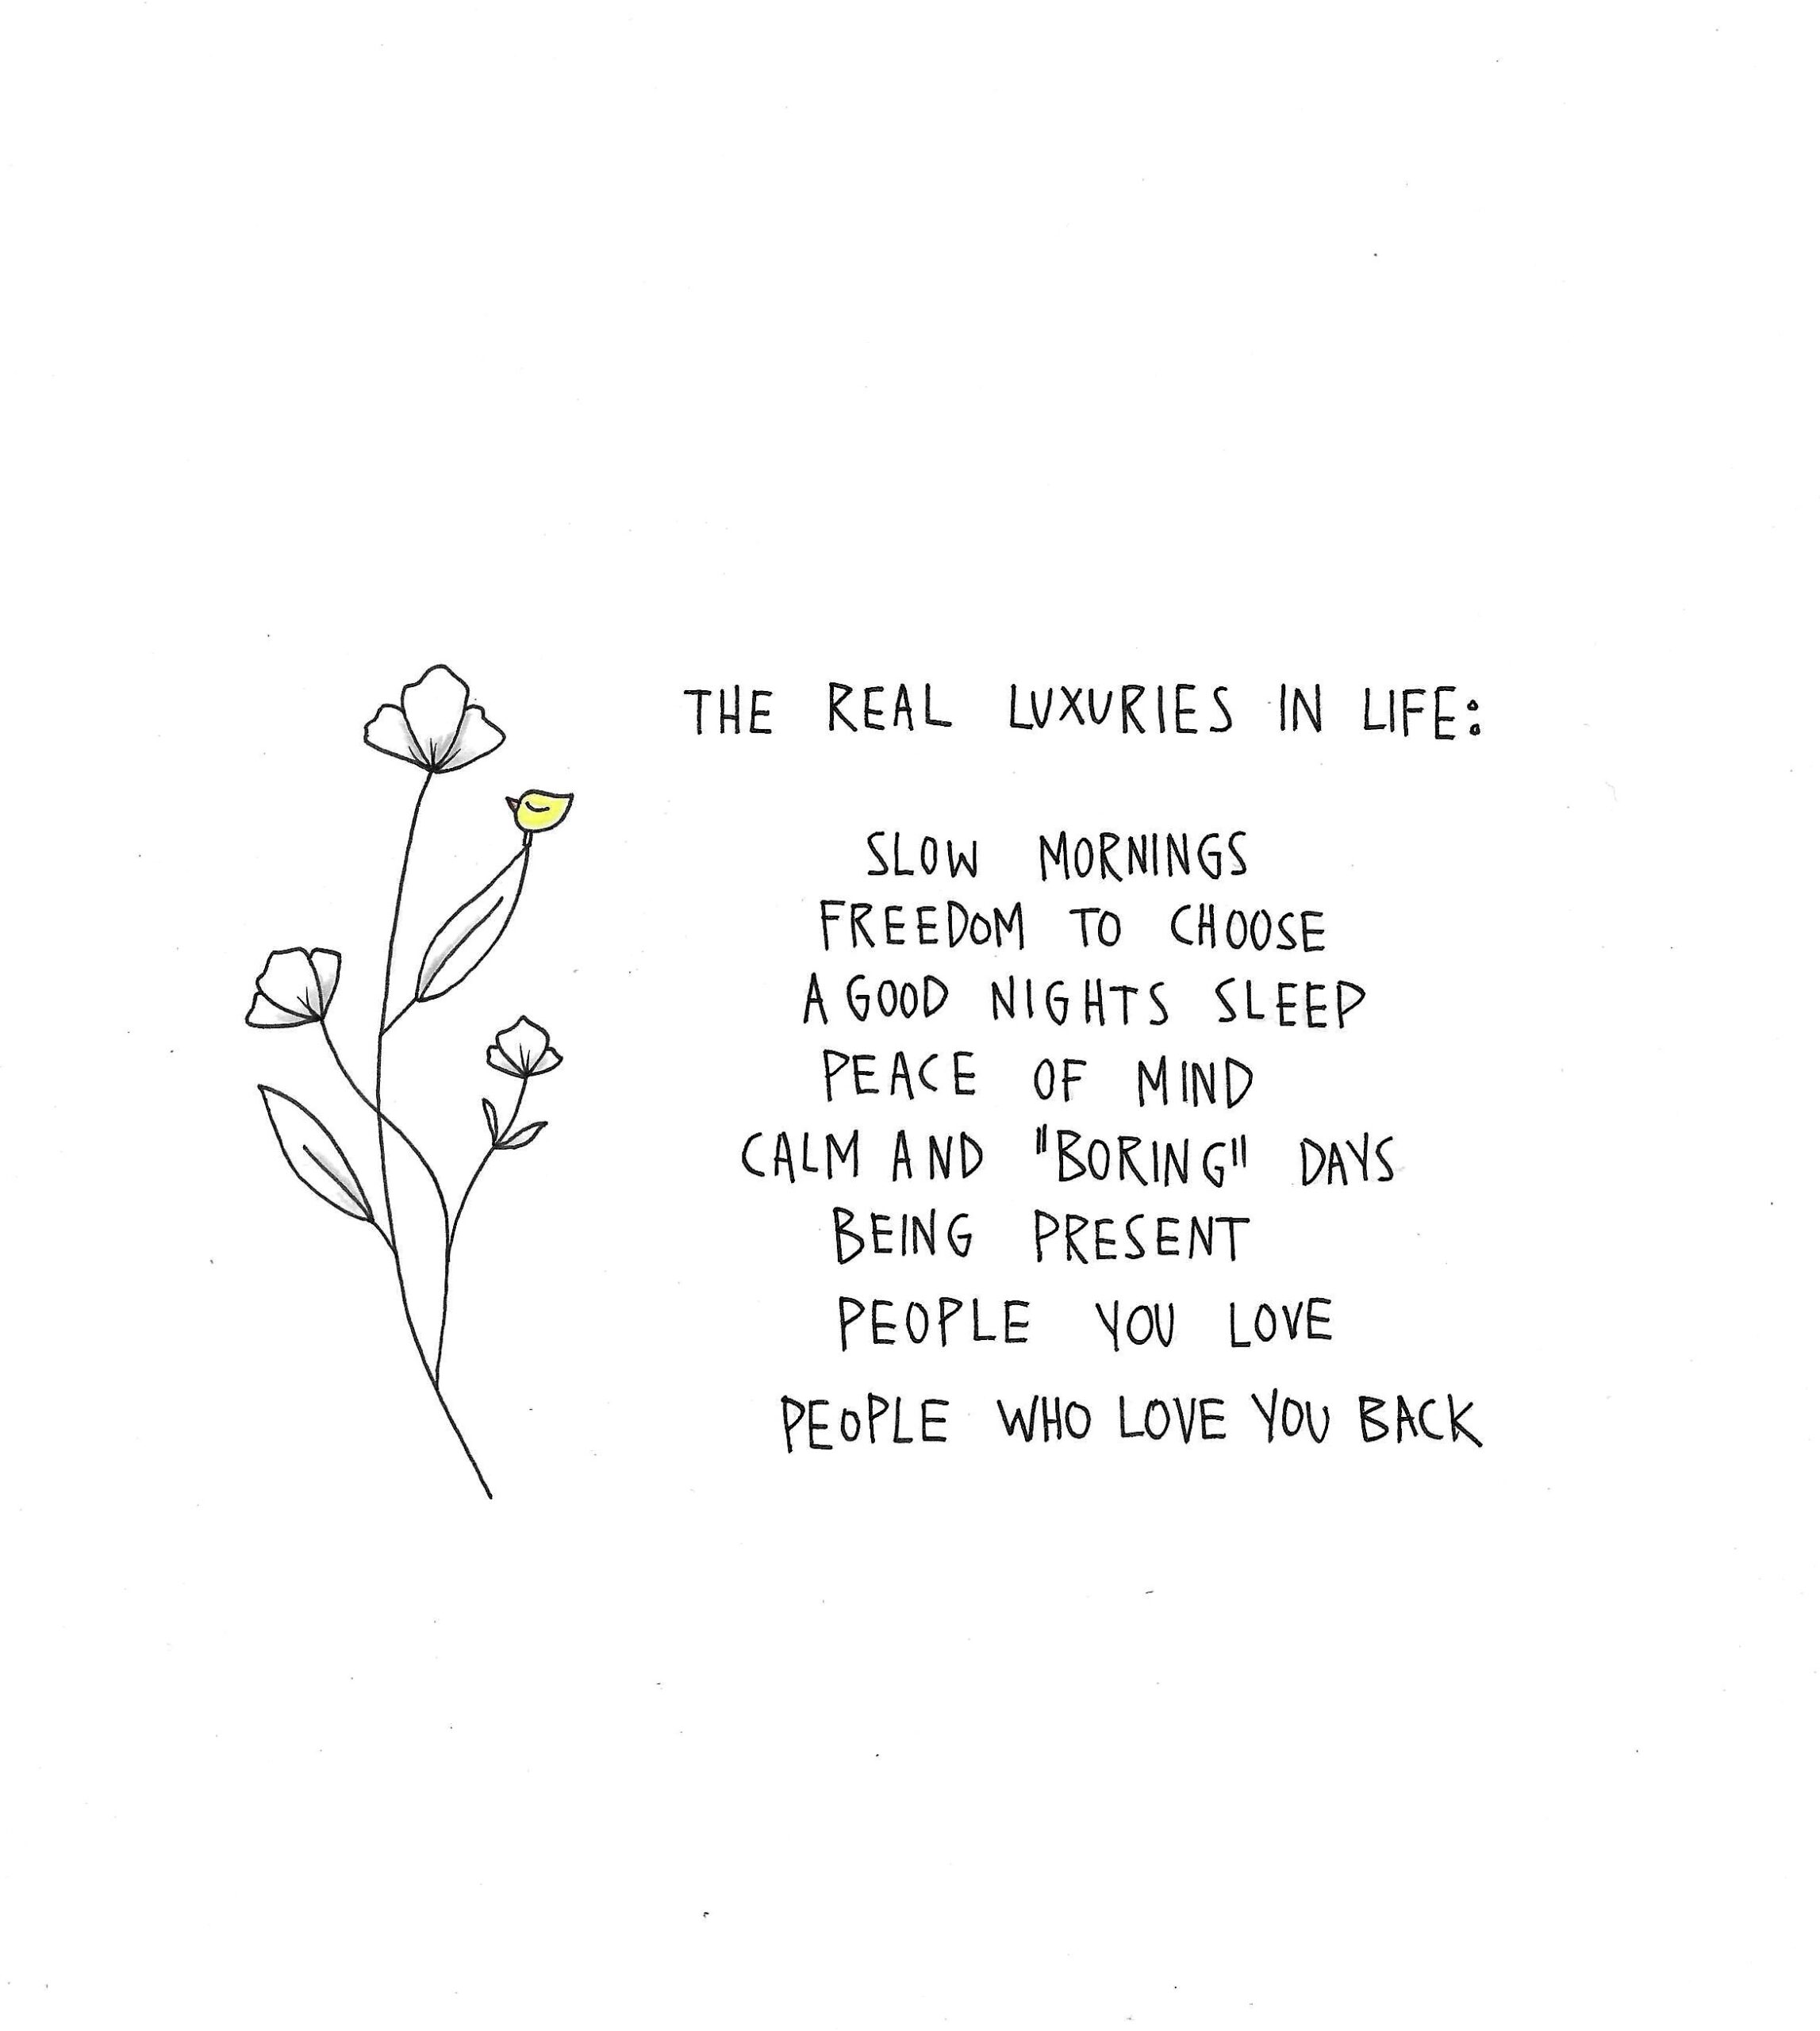 THE REAL LUXURIES IN LIFE:
SLOW MORNINGS
FREEDOM TO CHOOSE
A GOOD NIGHTS SLEEP
PEACE OF MIND
CALM AND "BORING" DAYS
BEING PRESENT
PEOPLE YOU LOVE
PEOPLE WHO LOVE YOU BACK